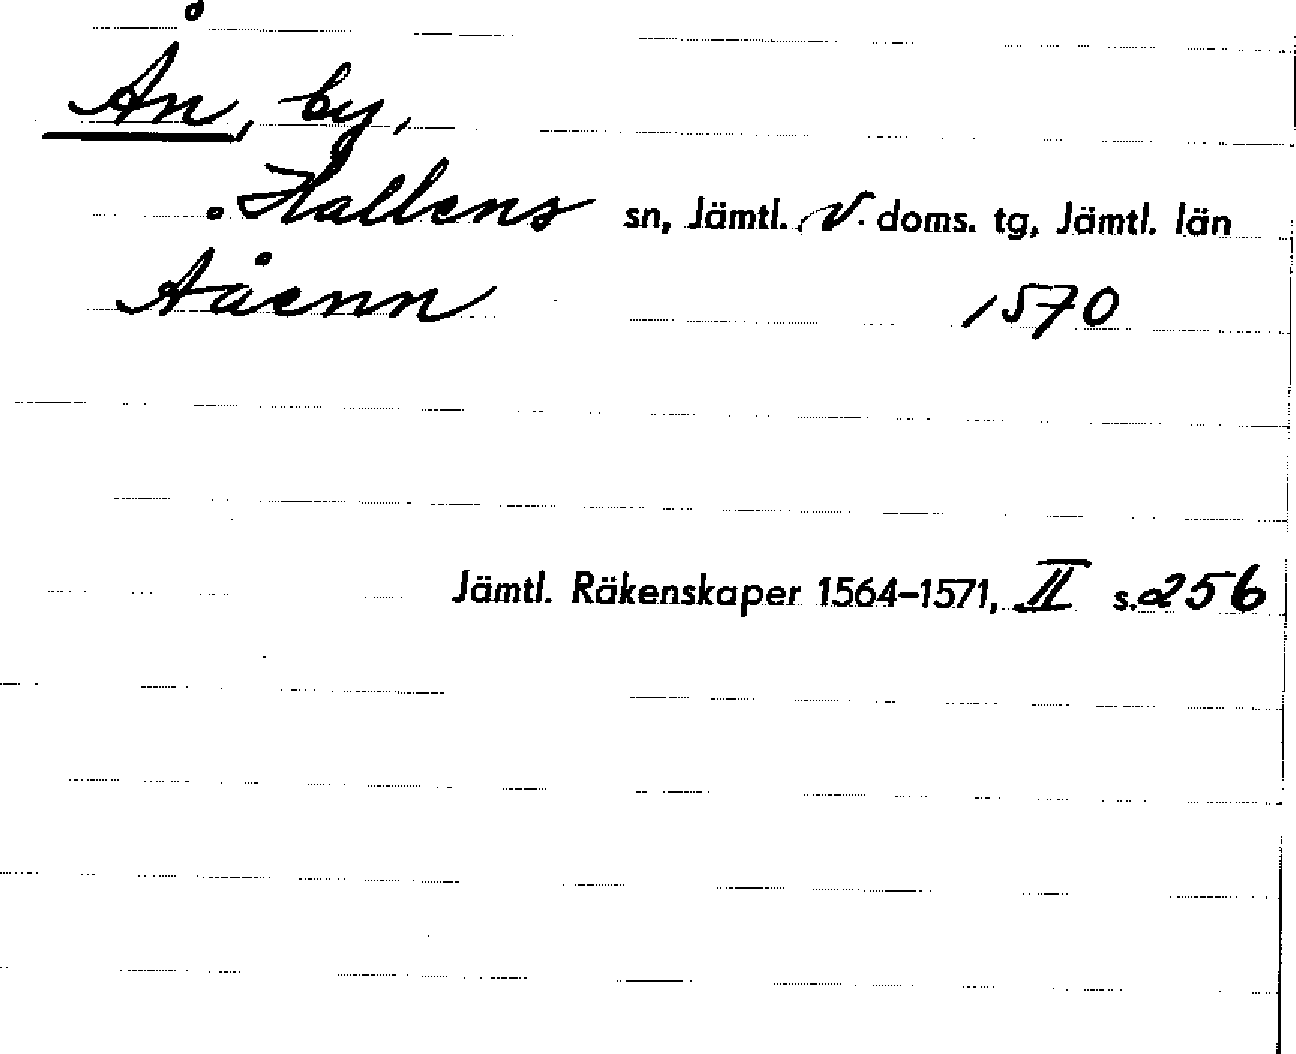 Ån, by,
Hallens sn, Jämtl. V. doms. tg, Jämtl. län
Aåenn 1570
Jämtl. Räkenskaper 1564–1571, II s. 256